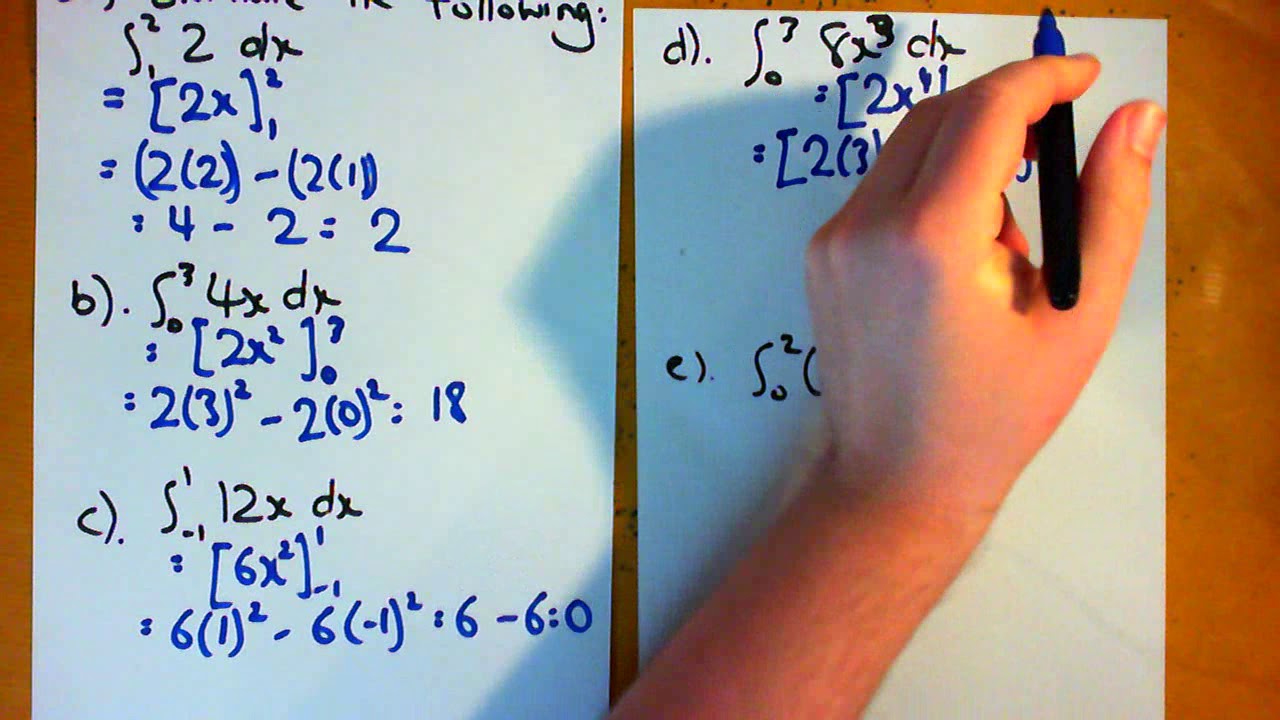 the following:
∫₁² 2 dx
= [2x]₁²
= (2(2)) - (2(1))
= 4 - 2 = 2
b). ∫₀³ 4x dx
= [2x²]₀³
= 2(3)² - 2(0)² = 18
c). ∫₋₁¹ 12x dx
= [6x²]₋₁¹
= 6(1)² - 6(-1)² = 6 - 6 = 0
d). ∫₀³ 8x³ dx
= [2x⁴]
= [2(3)
e). ∫₀² (